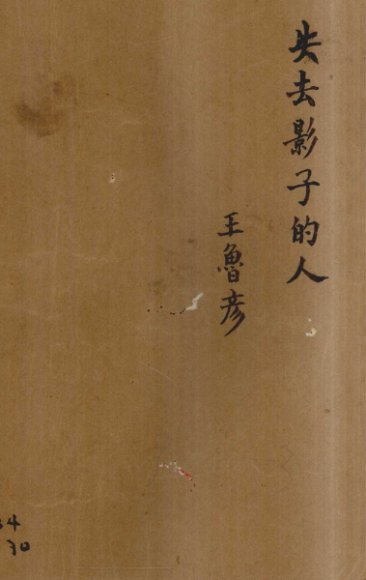 失去影子的人
王魯彦
34
30